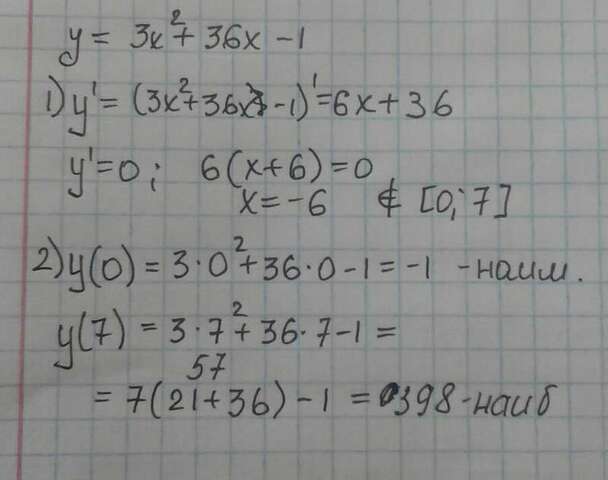 y = 3x² + 36x - 1
1) y' = (3x² + 36x - 1)' = 6x + 36
y' = 0; 6(x + 6) = 0
x = -6 ∉ [0; 7]
2) y(0) = 3·0² + 36·0 - 1 = -1 - наим.
y(7) = 3·7² + 36·7 - 1 =
57
= 7(21 + 36) - 1 = 398 - наиб